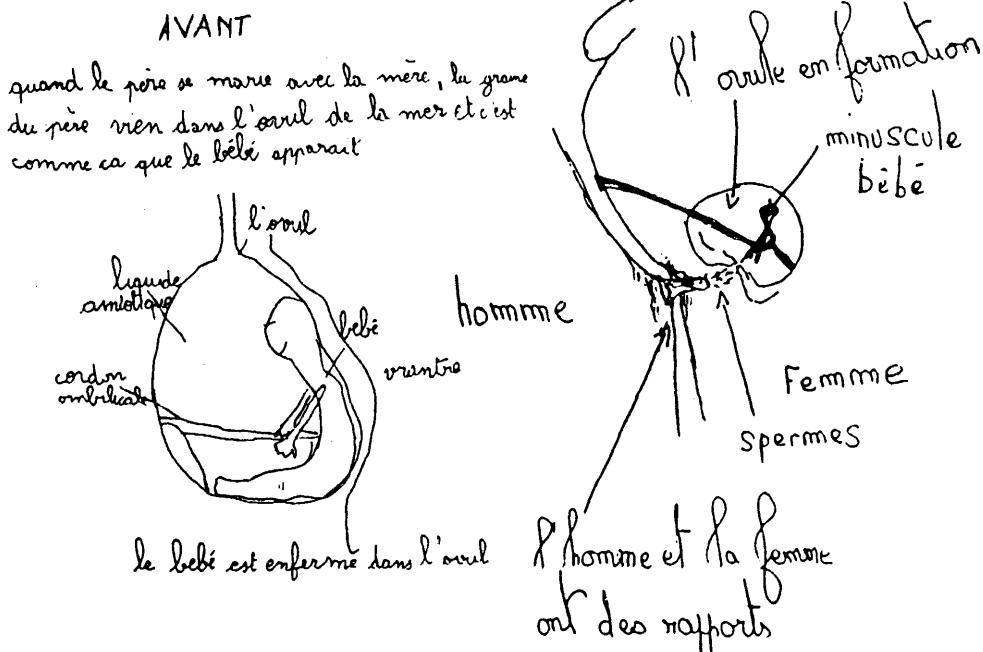 AVANT
quand le père se marie avec la mère, la graine
du père vien dans l'ovul de la mer et c'est
comme ca que le bébé apparait
l'ovul
liquide
amiotique
bébé
cordon
ombilicale
vrentre
le bébé est enfermé dans l'ovul
l'ovule en formation
minuscule
bébé
homme
Femme
spermes
l'homme et la femme
ont des rapports